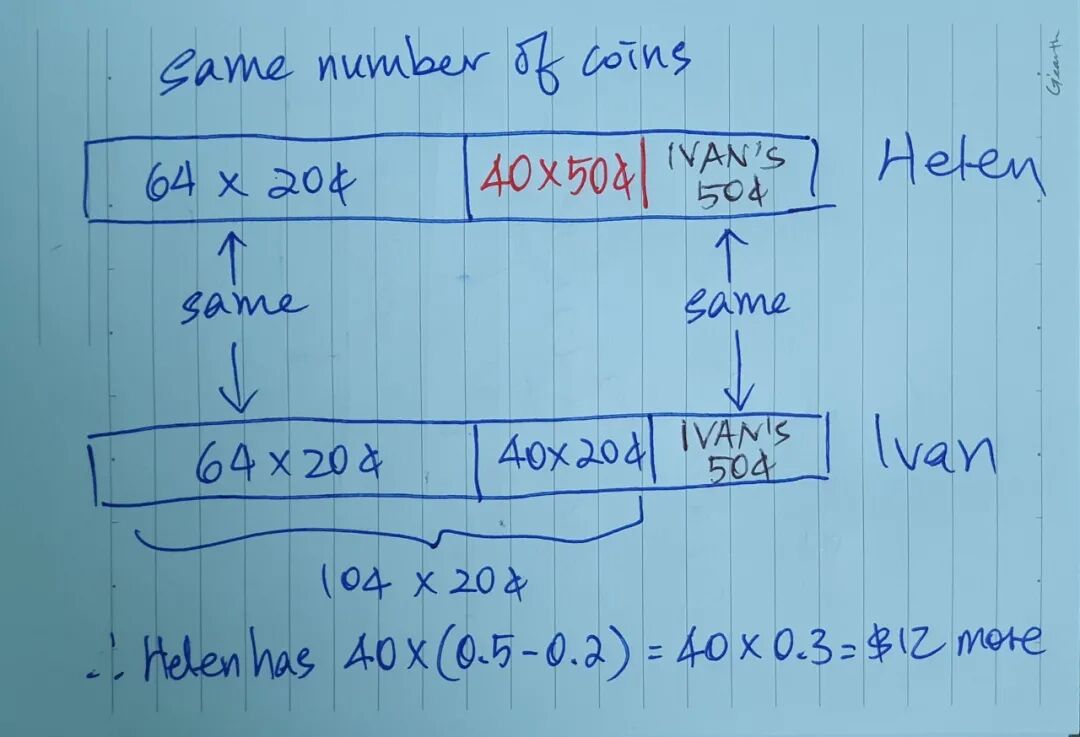 same number of coins
64 x 20¢ 40 x 50¢ IVAN'S 50¢ Helen
same same
64 x 20¢ 40 x 20¢ IVAN'S 50¢ Ivan
104 x 20¢
∴ Helen has 40 x (0.5 - 0.2) = 40 x 0.3 = $12 more